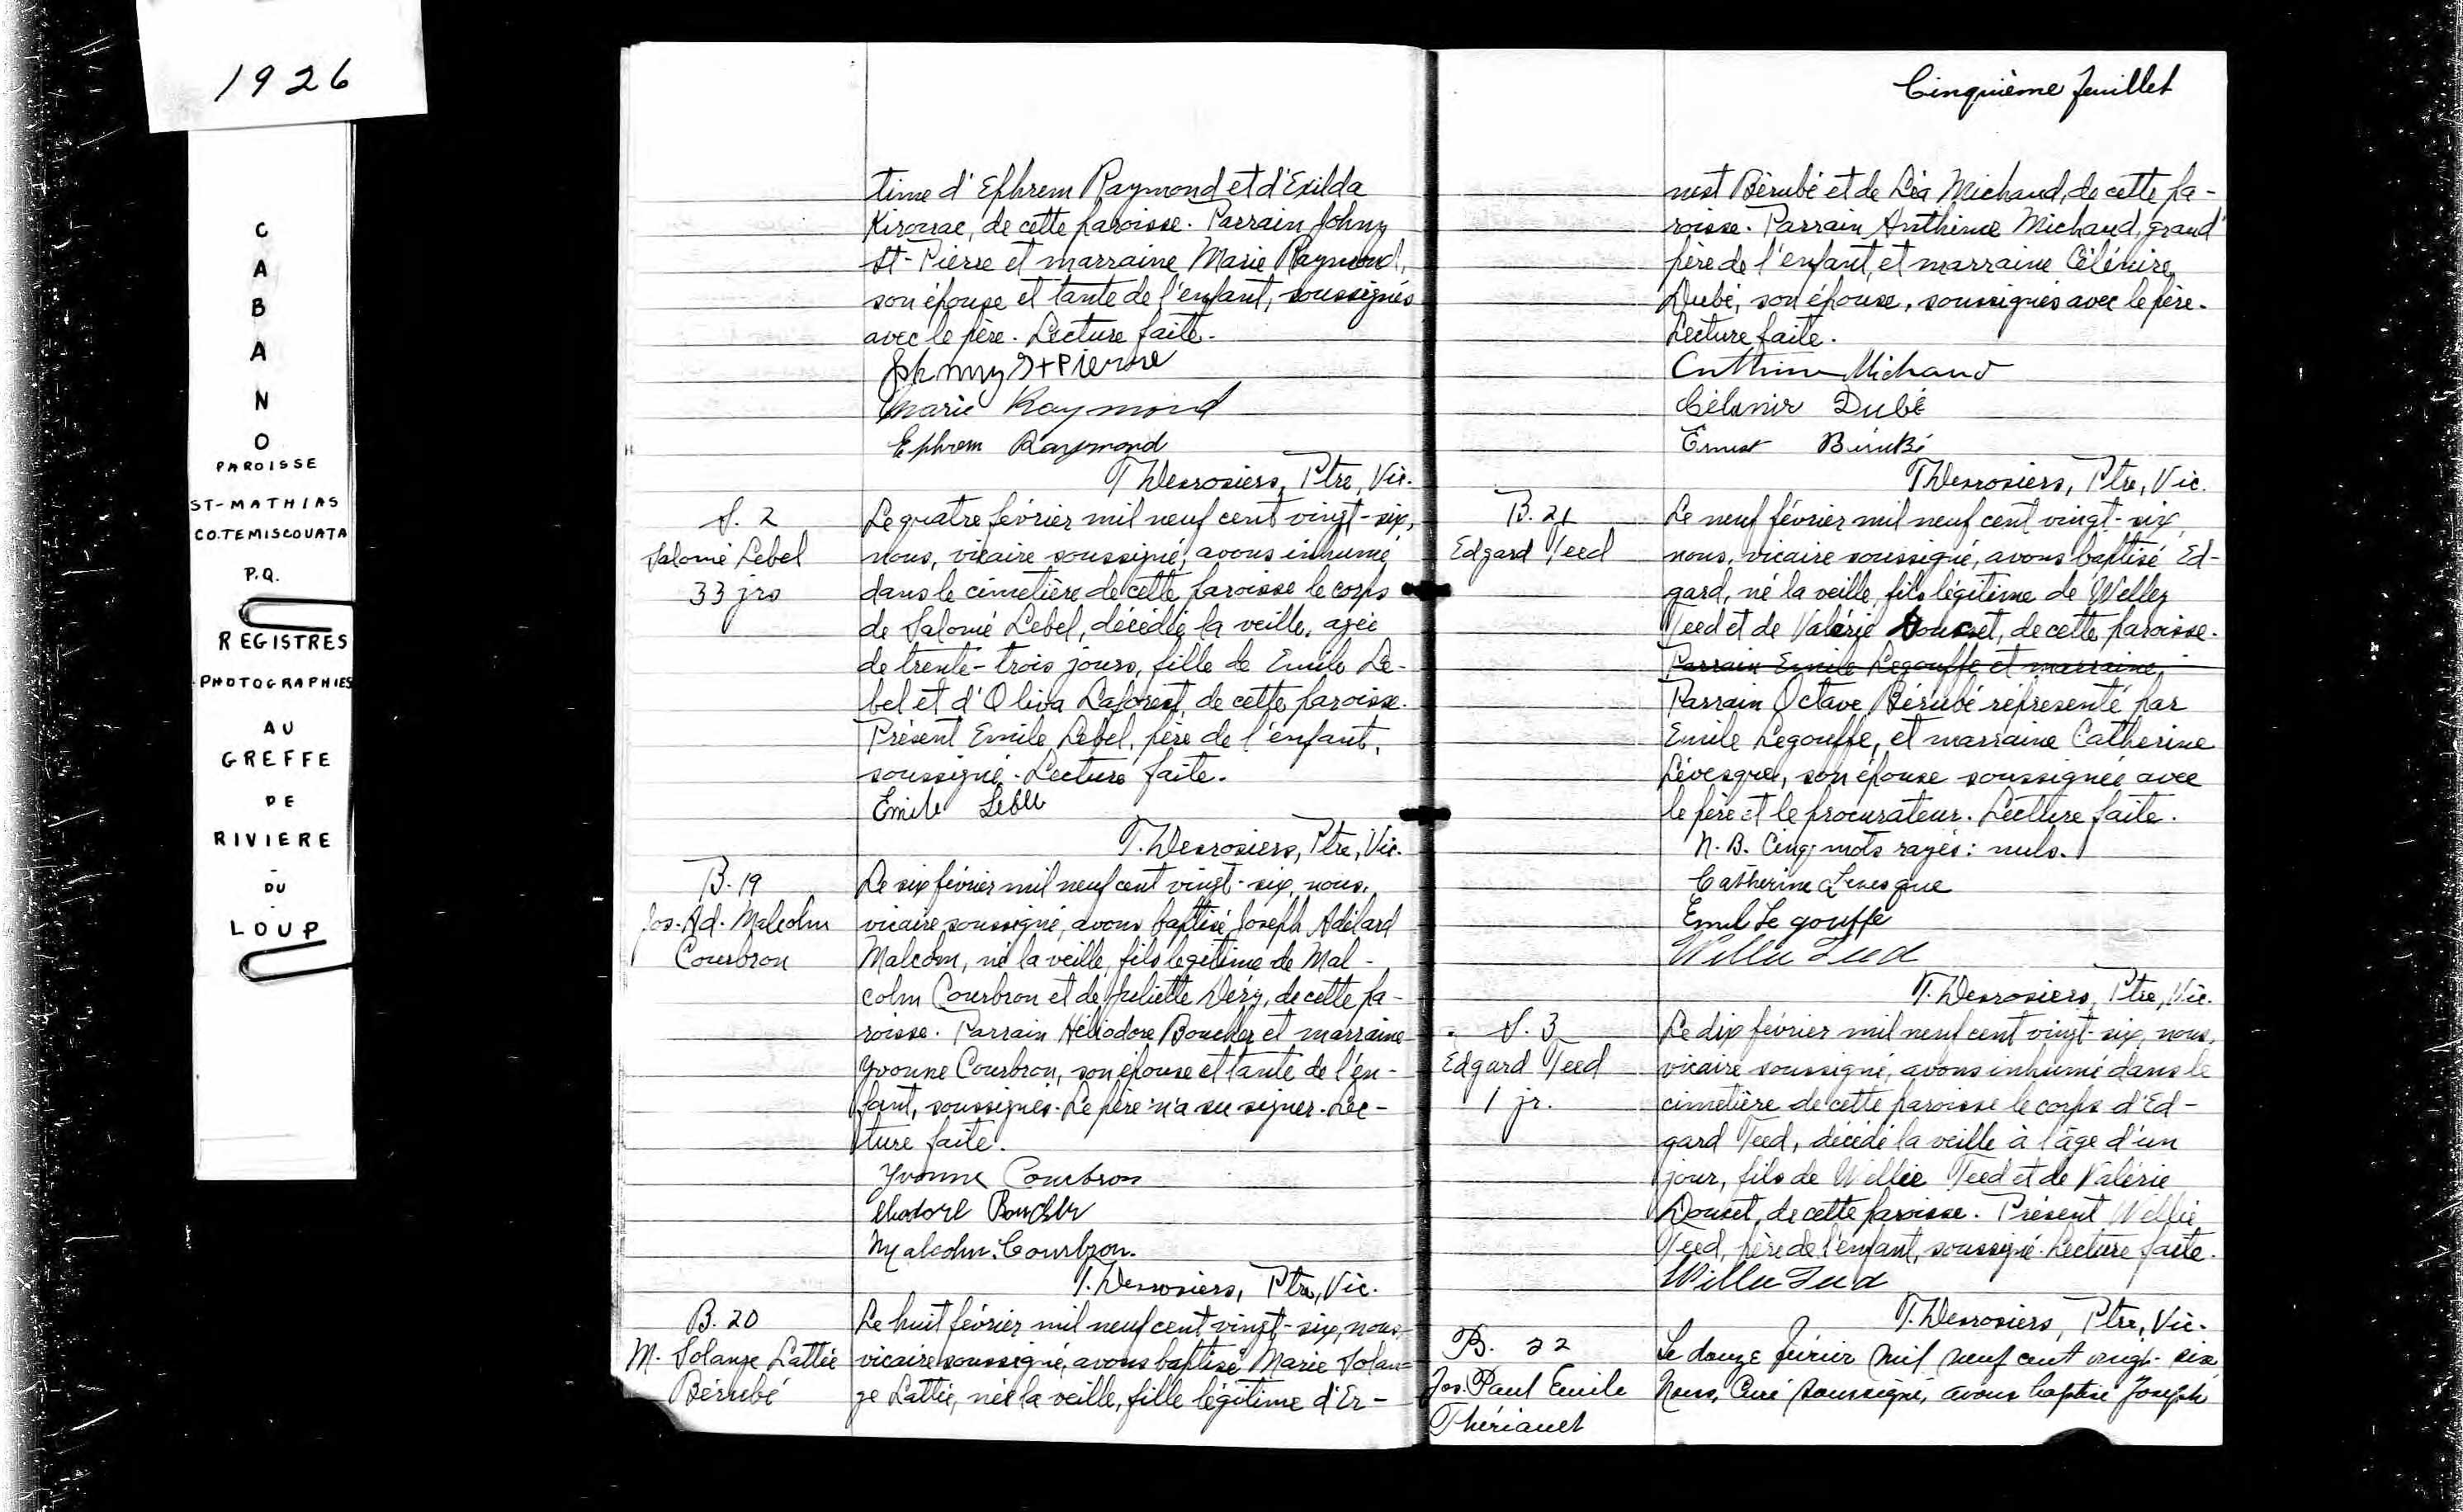 1926
C
A
B
A
N
O
PAROISSE
ST-MATHIAS
CO.TEMISCOUATA
P.Q.
REGISTRES
PHOTOGRAPHIES
AU
GREFFE
DE
RIVIERE
-
DU
-
LOUP
time d'Ephrem Raymond et d'Exilda
Kirouac, de cette paroisse. Parrain Johny
St-Pierre et marraine Marie Raymond,
son épouse et tante de l'enfant, soussignés
avec le père. Lecture faite.
Johnny St Pierre
Marie Raymond
Ephrem Raymond
T. Desrosiers, Ptre, Vic.
S. 2
Salomé Lebel
33 jrs
Le quatre février mil neuf cent vingt-six,
nous, vicaire soussigné, avons inhumé
dans le cimetière de cette paroisse le corps
de Salomé Lebel, décédée la veille, agée
de trente-trois jours, fille de Emile Le-
bel et d'Oliva Laforest, de cette paroisse.
Présent Emile Lebel, père de l'enfant,
soussigné. Lecture faite.
Emile Lebel
T. Desrosiers, Ptre, Vic.
B. 19
Jos. Ad. Malcolm
Courbron
Le six février mil neuf cent vingt-six, nous,
vicaire soussigné, avons baptisé Joseph Adélard
Malcolm, né la veille, fils légitime de Mal-
colm Courbron et de Juliette Déry, de cette pa-
roisse. Parrain Héliodore Boucher et marraine
Yvonne Courbron, son épouse et tante de l'en-
fant, soussignés. Le père n'a su signer. Lec-
ture faite.
Yvonne Courbron
Boucher
Malcolm Courbron.
T. Desrosiers, Ptre, Vic.
B. 20
M. Solange Lattie
Bérubé
Le huit février mil neuf cent vingt-six, nous,
vicaire soussigné, avons baptisé Marie Solan-
ge Lattie, née la veille, fille légitime d'Er-
Cinquième feuillet
nest Bérubé et de Léa Michaud, de cette pa-
roisse. Parrain Anthime Michaud, grand'
père de l'enfant, et marraine Célénire
Dubé, son épouse, soussignés avec le père.
Lecture faite.
Anthime Michaud
Célénir Dubé
Ernest Bérubé
T. Desrosiers, Ptre, Vic.
B. 21
Edgard Teed
Le neuf février mil neuf cent vingt-six,
nous, vicaire soussigné, avons baptisé Ed-
gard, né la veille, fils légitime de Welley
Teed et de Valérie Doucet, de cette paroisse.
Parrain Emile Legouffe et marraine
Parrain Octave Bérubé représenté par
Emile Legouffe, et marraine Catherine
Lévesque, son épouse soussignée avec
le père et le procurateur. Lecture faite.
N.B. Cinq mots rayés: nuls.
Catherine Levesque
Emil Le gouffe
Willie Teed
T. Desrosiers, Ptre, Vic.
S. 3
Edgard Teed
1 jr.
Le dix février mil neuf cent vingt-six, nous,
vicaire soussigné, avons inhumé dans le
cimetière de cette paroisse le corps d'Ed-
gard Teed, décédé la veille à l'âge d'un
jour, fils de Wellie Teed et de Valérie
Doucet, de cette paroisse. Présent Wellie
Teed, père de l'enfant, soussigné. Lecture faite.
Willie Teed
T. Desrosiers, Ptre, Vic.
B. 22
Jos. Paul Emile
Thériault
Le douze février mil neuf cent vingt-six
Nous, Curé soussigné, avons baptisé Joseph